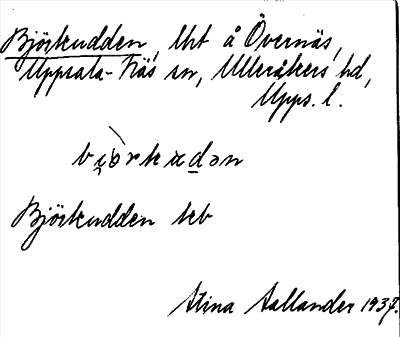 Björkudden, lht å Övernäs,
Uppsala-Näs sn, Ulleråkers hd,
Upps. l.
Björkudden bb
Stina Sallander 1937.